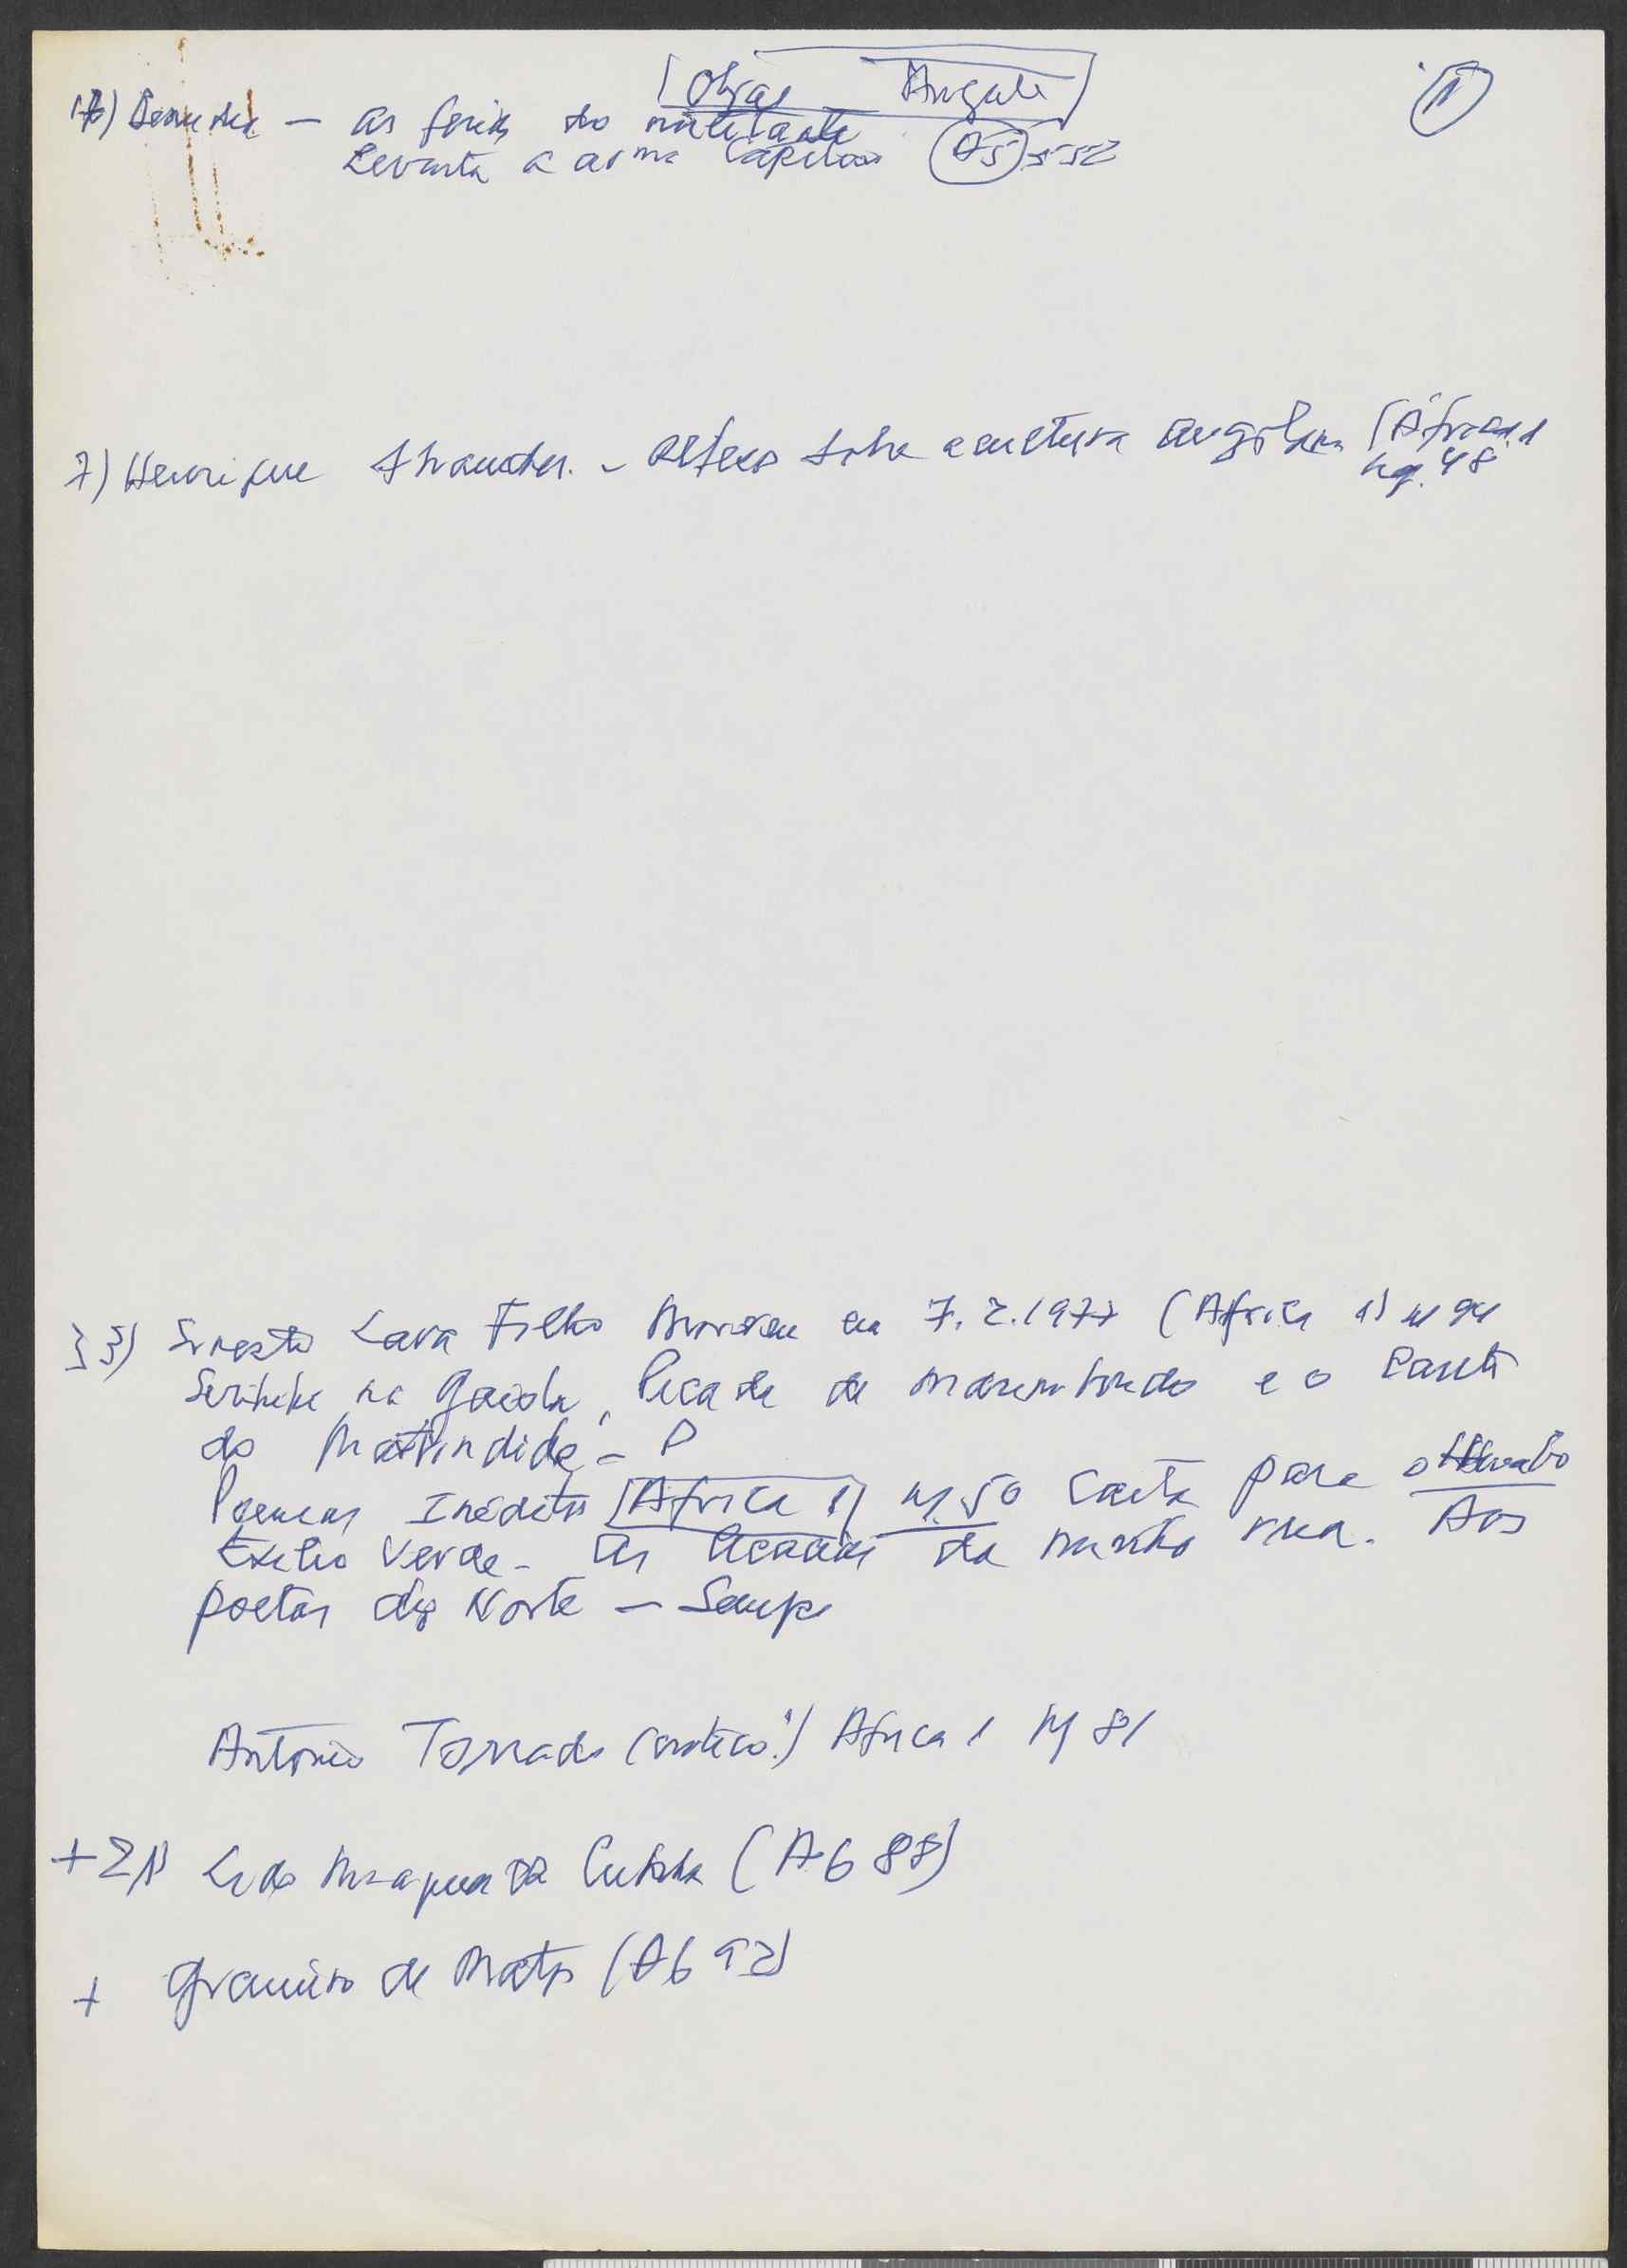 Obras Angola
1
Benudia - as ferias do militante
Levanta a arma Capitão A5 552
7) Henrique Abranches. - Reflexos sobre a cultura angolana (África 1
pg. 48
33) Ernesto Lara Filho Morreu em 7.2.1977 (Africa 1) pg 94
Seripipi na Gaiola, Picada de marimbondo e o Canto
do Matrindinde - P
Poemas Inéditos [Africa 1] pg. 50 Carta para o
Exilio Verde - As Acacias da minha rua. Aos
poetas do Norte -
António Torrado (erotico!) Africa 1 pg 81
+ 21) Lido Mesquita Cunha (A6 88)
+ Gramiro de Matos (A6 92)